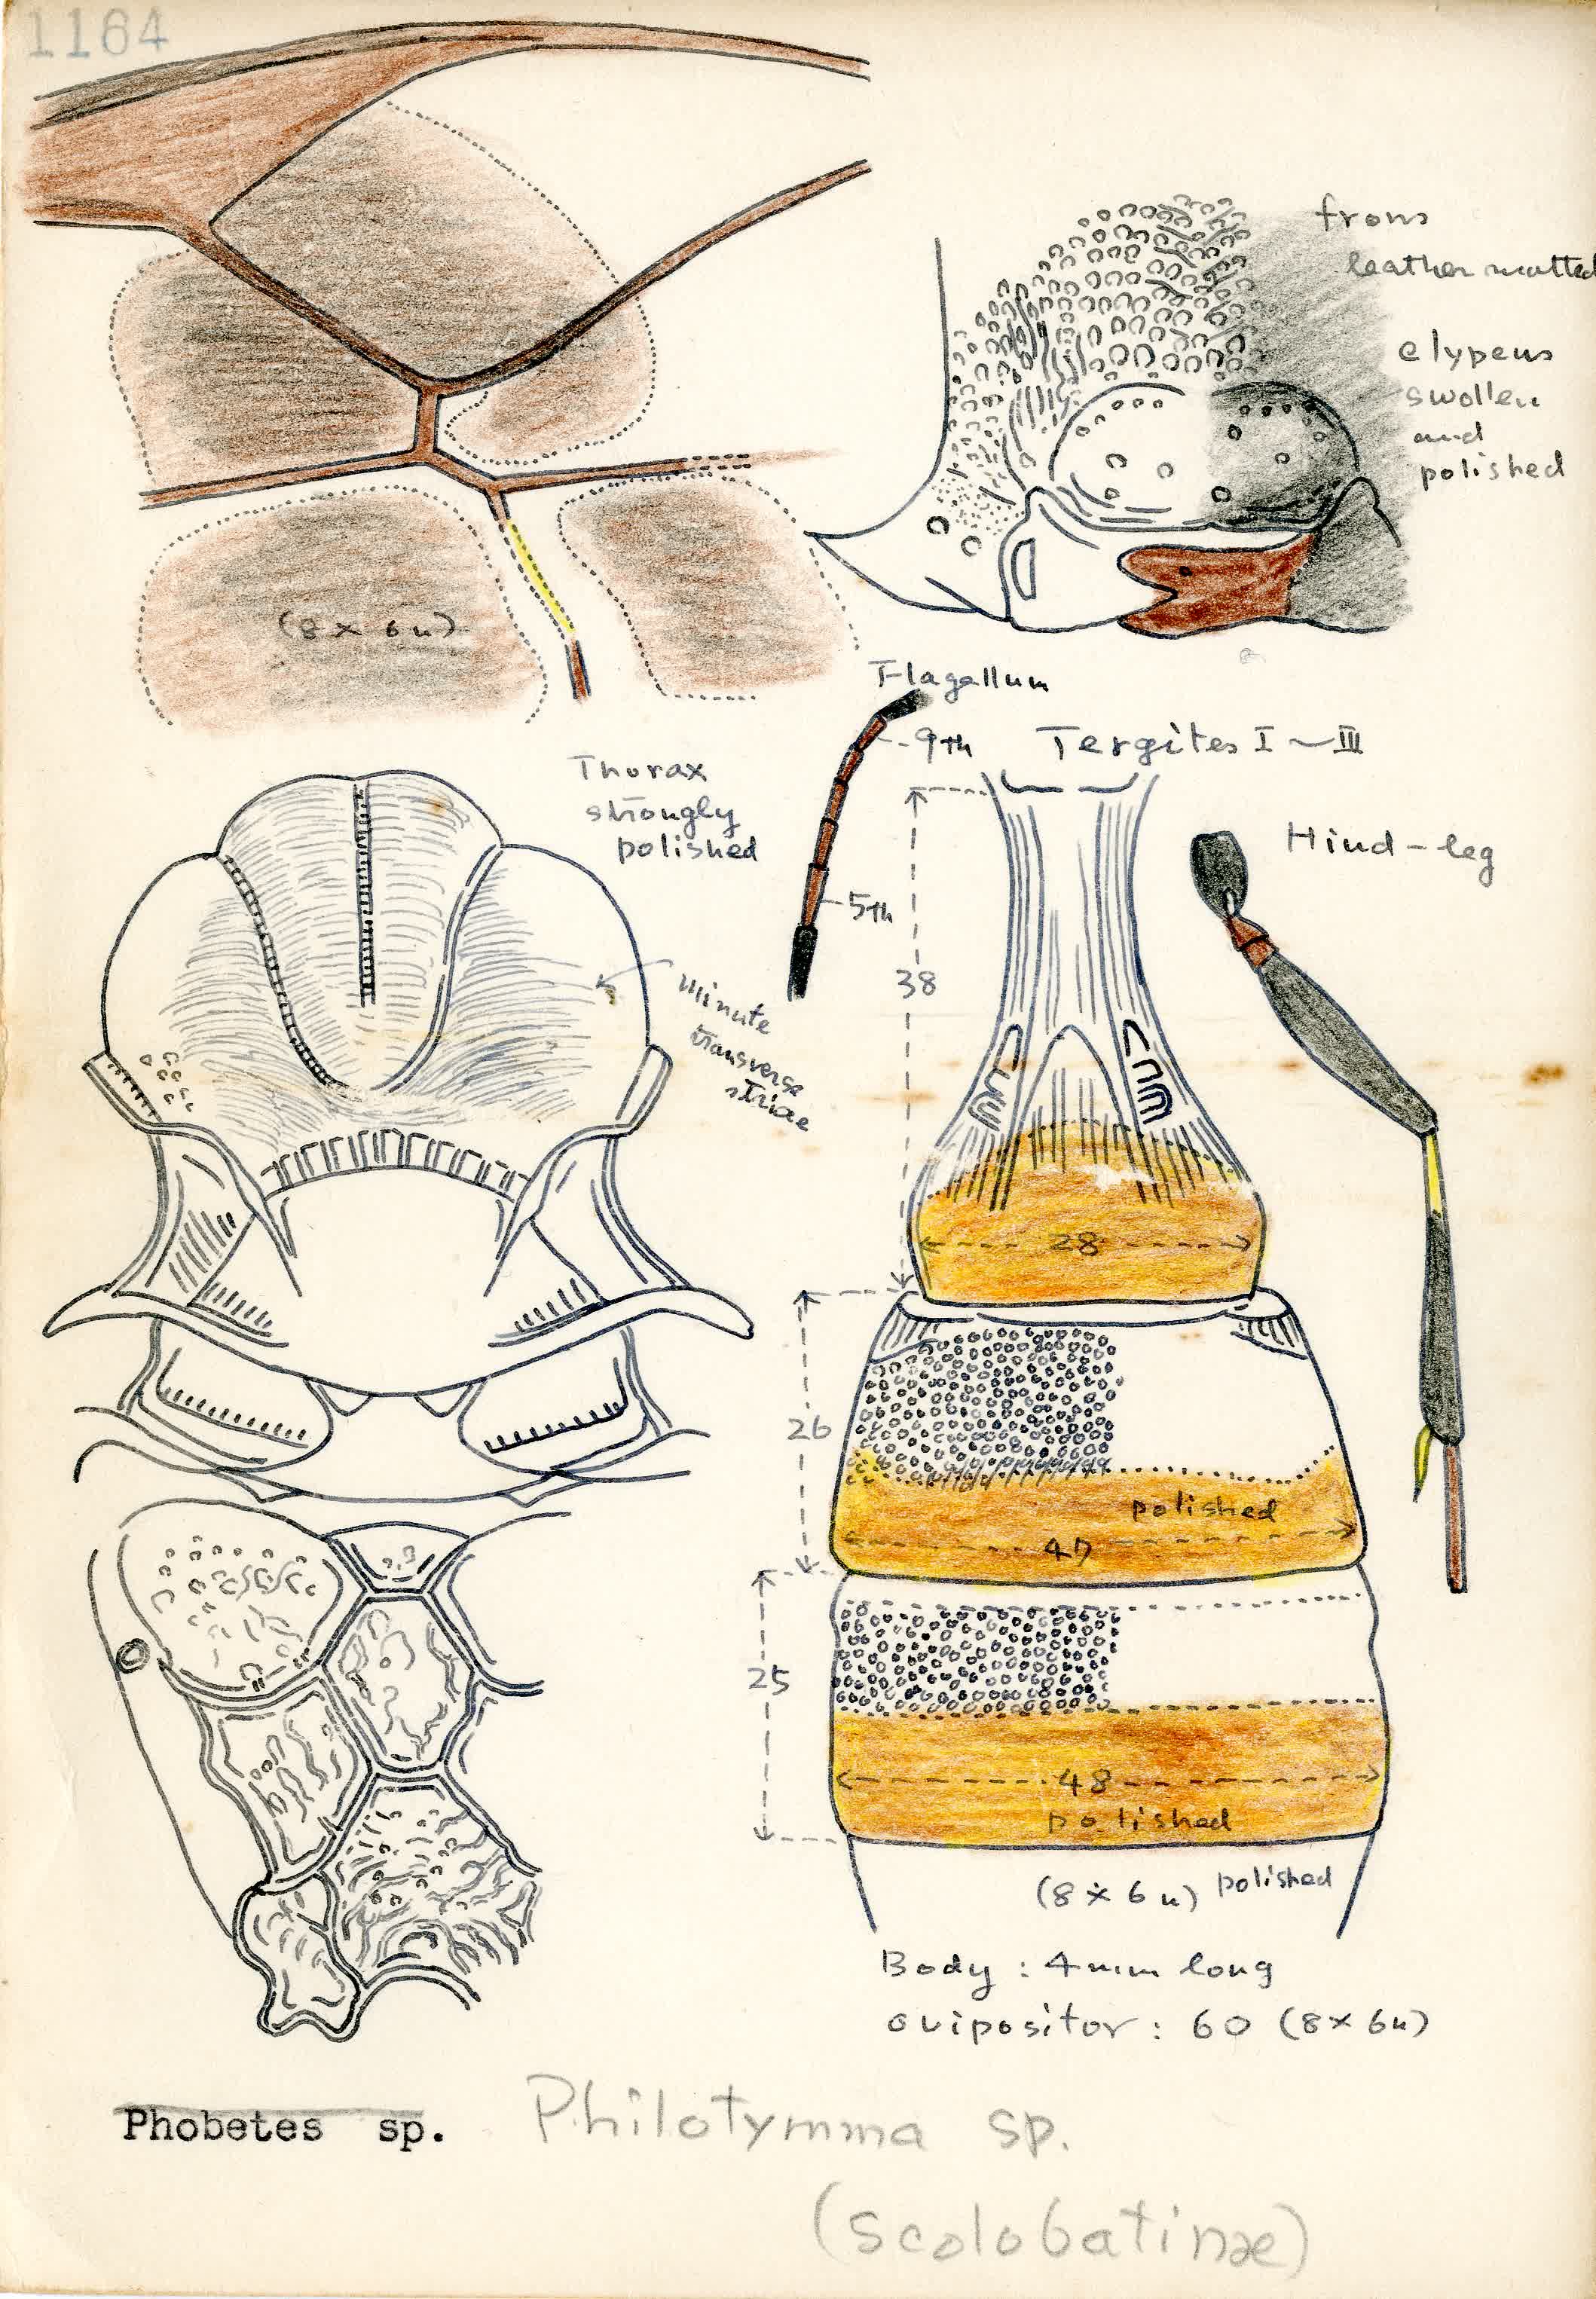 1164
frons
leather matted
clypeus
swollen
and
polished
(8 x 6u)
Flagellum
9th
5th
Thorax
strongly
polished
minute
transverse
striae
Tergites I ~ III
38
28
Hind-leg
26
polished
47
25
48
polished
(8 x 6u) polished
Body : 4mm long
ovipositor : 60 (8x6u)
Phobetes sp.
Philotymma sp.
(scolobatinae)